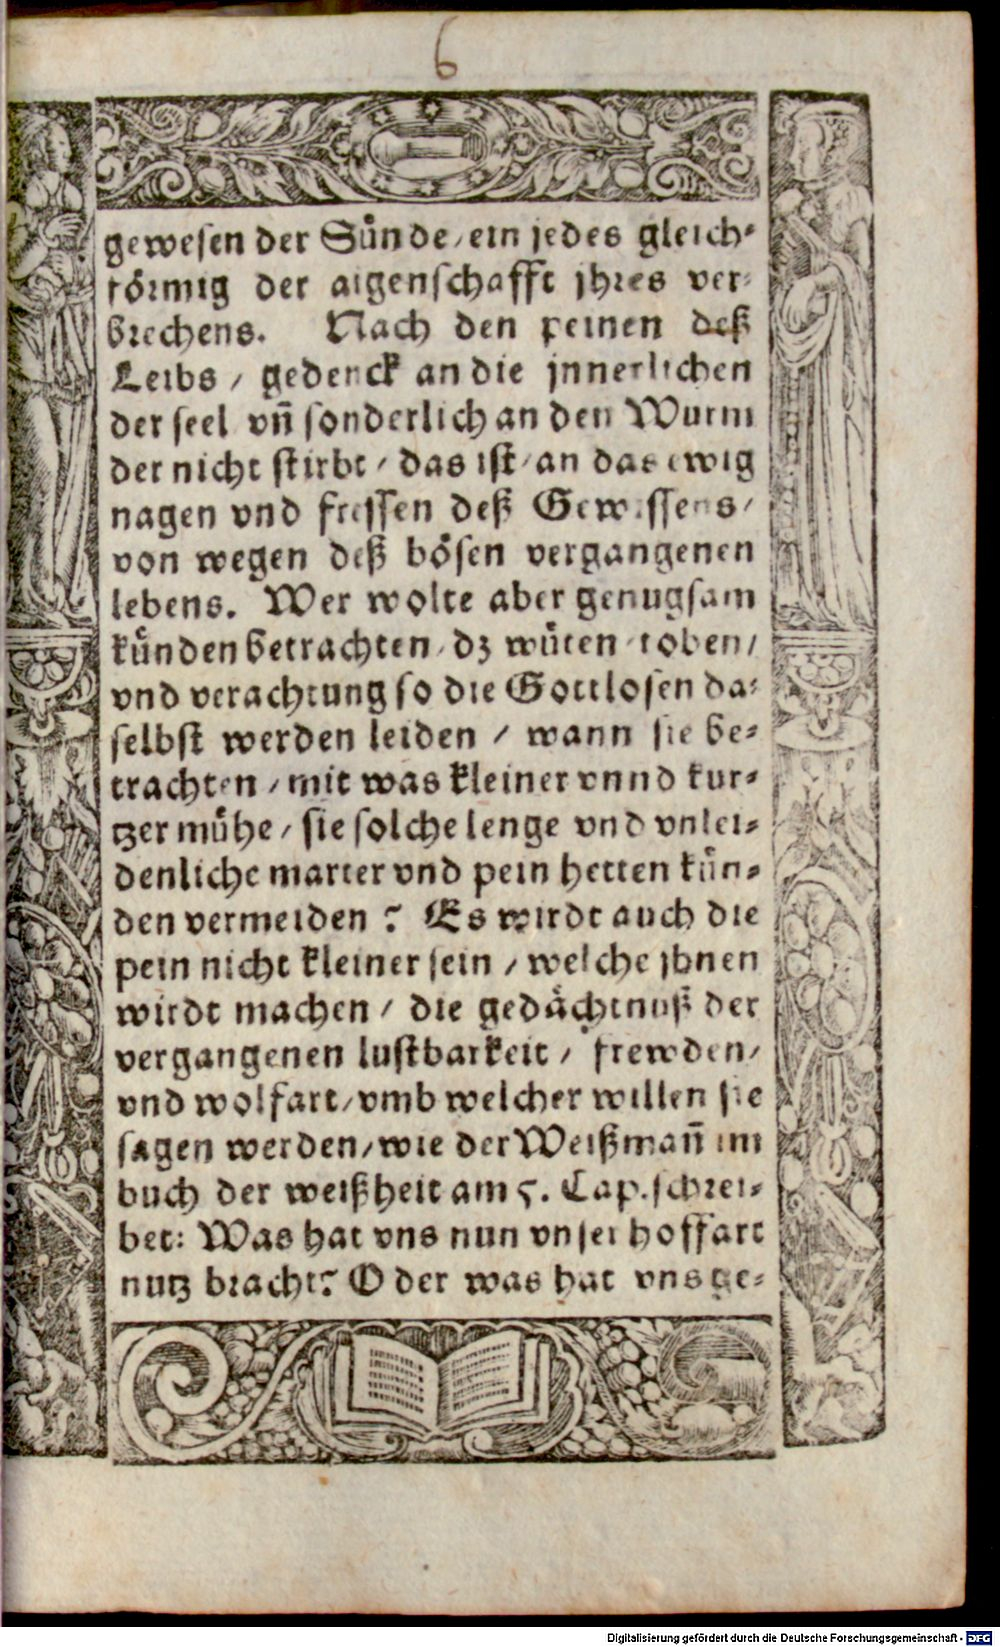 6
gewesen der Sůnde / ein jedes gleich-
förmig der aigenschafft jhres ver-
brechens. Nach den peinen deß
Leibs / gedenck an die jnnerlichen
der seel vñ sonderlich an den Wurm
der nicht stirbt / das ist / an das ewig
nagen vnd fressen deß Gewissens /
von wegen deß bösen vergangenen
lebens. Wer wolte aber genugsam
kůnden betrachten / dz wůten / toben /
vnd verachtung so die Gottlosen da-
selbst werden leiden / wann sie be-
trachten / mit was kleiner vnnd kur-
tzer můhe / sie solche lenge vnd vnlei-
denliche marter vnd pein hetten kůn-
den vermeiden ? Es wirdt auch die
pein nicht kleiner sein / welche jhnen
wirdt machen / die gedåchtnuß der
vergangenen lustbarkeit / frewden /
vnd wolfart / vmb welcher willen sie
sagen werden / wie der Weißmañ im
buch der weißheit am 5. Cap. schrei-
bet: Was hat vns nun vnser hoffart
nutz bracht? Oder was hat vns ge-
Digitalisierung gefördert durch die Deutsche Forschungsgemeinschaft - DFG